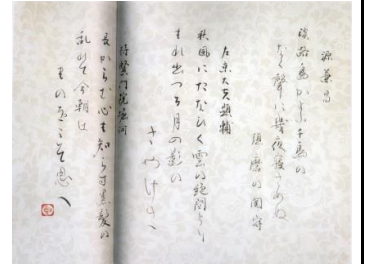 源兼昌
淡路島かよふ千鳥の
なく聲に幾夜寝さめぬ
須磨の関守
左京大夫顕輔
秋風にたなひく雲の絶間より
もれ出つる月の影の
さやけさ
待賢門院堀河
長からむ心も知らす黒髪の
乱れて今朝は
ものをこそ思へ